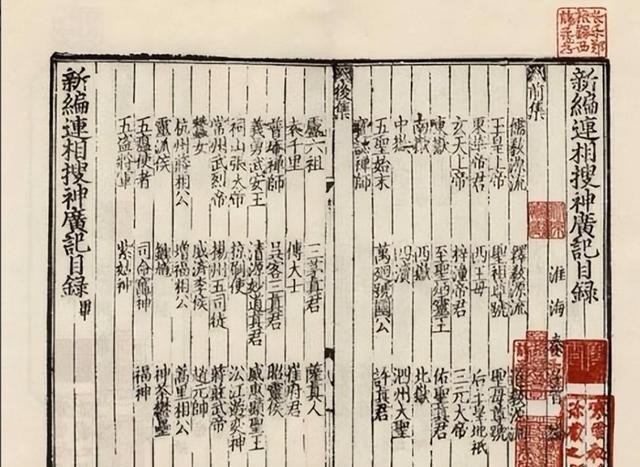 新編連相搜神廣記目錄
淮海秦
前集
儒教源流 釋教源流 道教源流
玉皇上帝 聖祖尊號 聖母尊號
東華帝君 西王母 后土皇地祇
玄天上帝 梓潼帝君 三元大帝
東嶽 至聖炳靈王 佑聖真君
南嶽 西嶽 北嶽
中嶽 四瀆 泗州大聖
五聖始末 萬廻號國公 許真君
寶誌禪師
後集
盧六祖 三茅真君 薩真人
袁千里 傅大士 崔府君
普庵禪師 吳客三真君 昭靈侯
義勇武安王 清源妙道真君 威惠顯聖王
祠山張大帝 掠剩使 沿江游奕神
常州武烈帝 揚州五司徒 蔣莊武帝
蠶女 威濟李侯 趙元帥
杭州蔣相公 增福相公 萬里相公
靈泒侯 鍾馗 神荼鬱壘
五瘟使者 司命竈神 福神
五盜將軍 紫姑神
新編連相搜神廣記目錄 畢